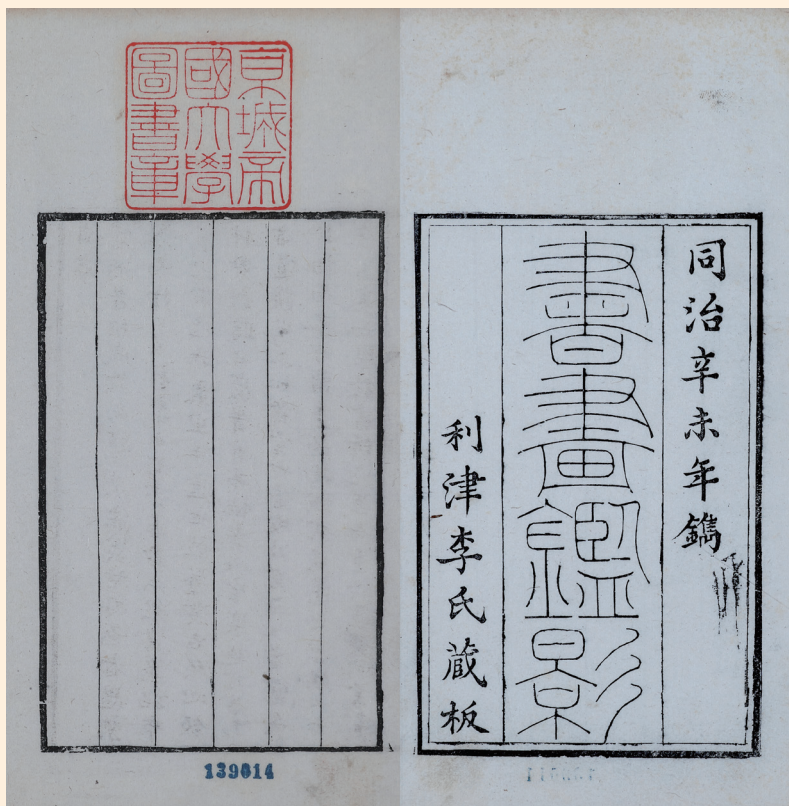 同治辛未年鐫
書畫鑑影
利津李氏藏板
京城帝
國大學
圖書章
139014